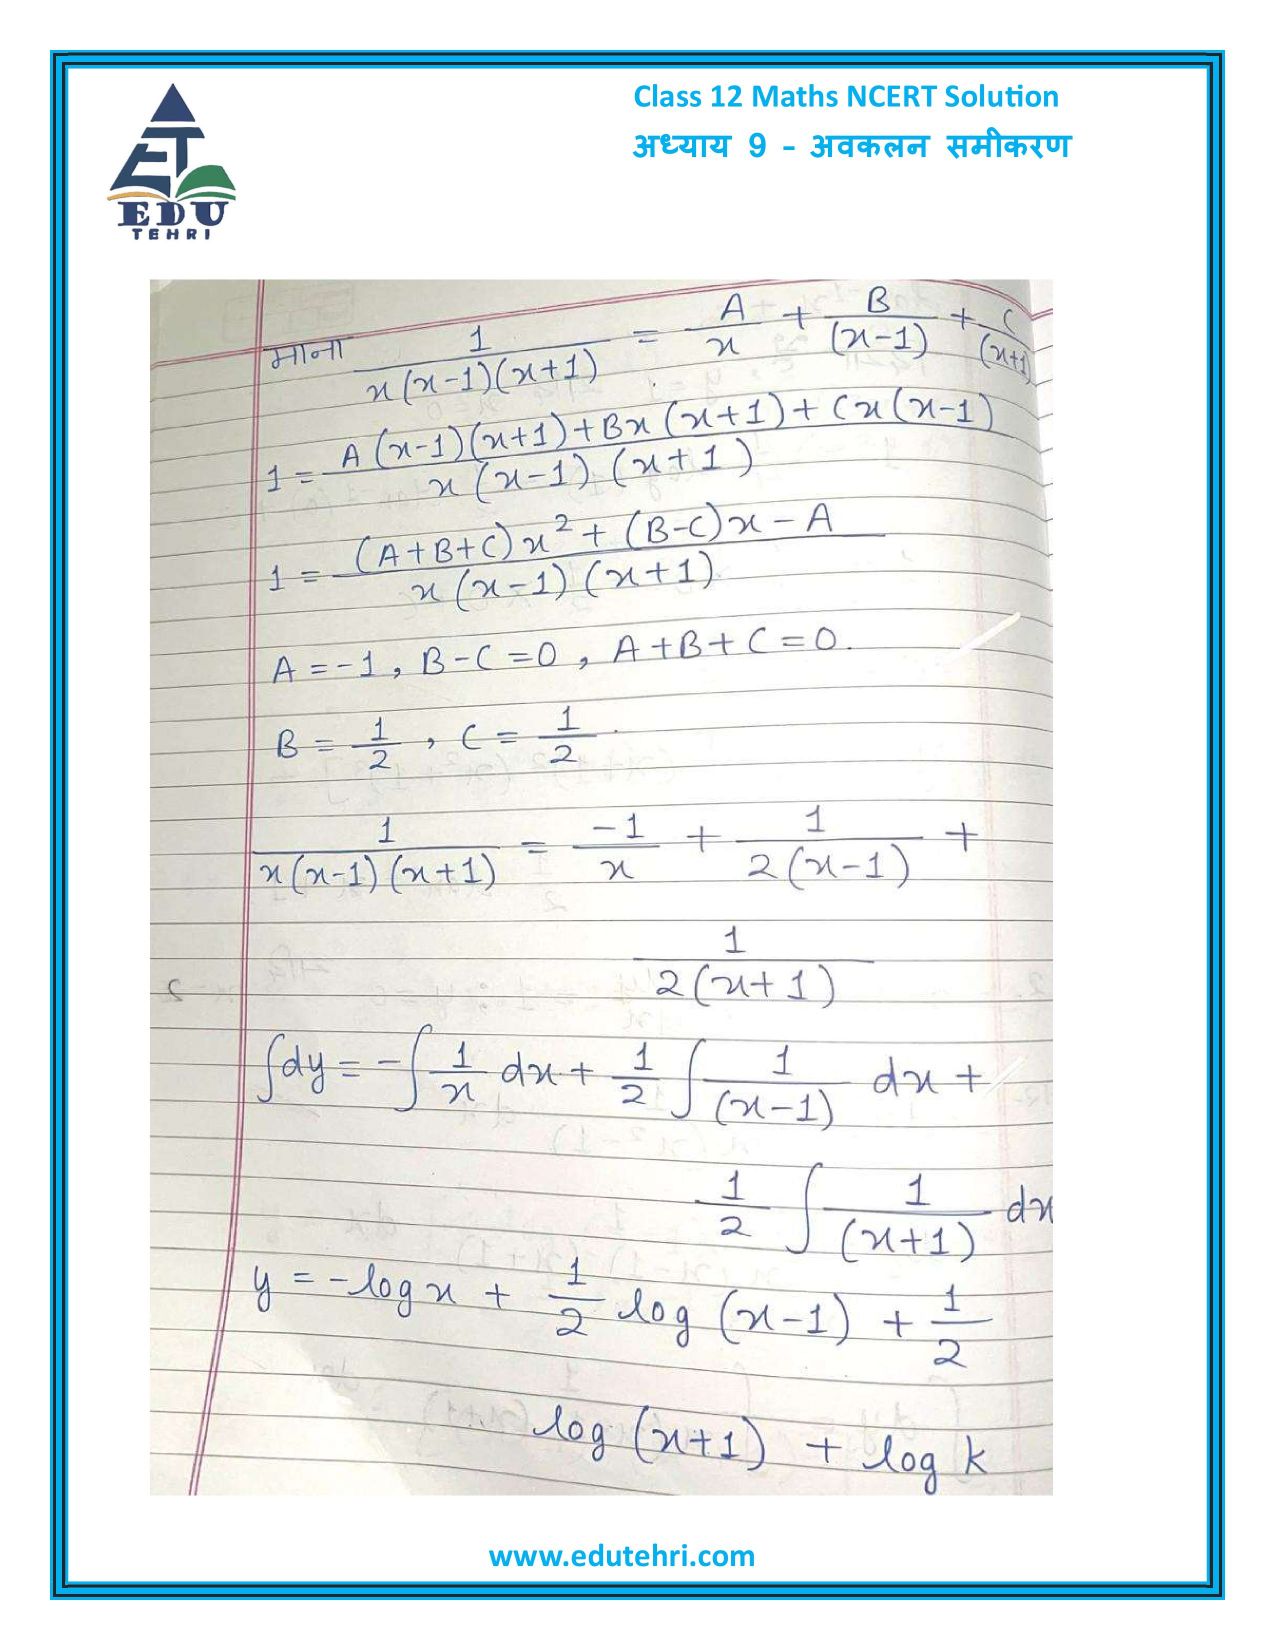 Class 12 Maths NCERT Solution
अध्याय 9 - अवकलन समीकरण
EDU
TEHRI
माना 1/(x(x-1)(x+1)) = A/x + B/(x-1) + C/(x+1)
1 = (A(x-1)(x+1) + Bx(x+1) + Cx(x-1))/(x(x-1)(x+1))
1 = ((A+B+C)x² + (B-C)x - A)/(x(x-1)(x+1))
A = -1, B-C = 0, A+B+C = 0.
B = 1/2, C = 1/2.
1/(x(x-1)(x+1)) = -1/x + 1/(2(x-1)) +
1/(2(x+1))
∫dy = -∫1/x dx + 1/2 ∫1/(x-1) dx +
1/2 ∫1/(x+1) dx
y = -log x + 1/2 log (x-1) + 1/2
log (x+1) + log k
www.edutehri.com